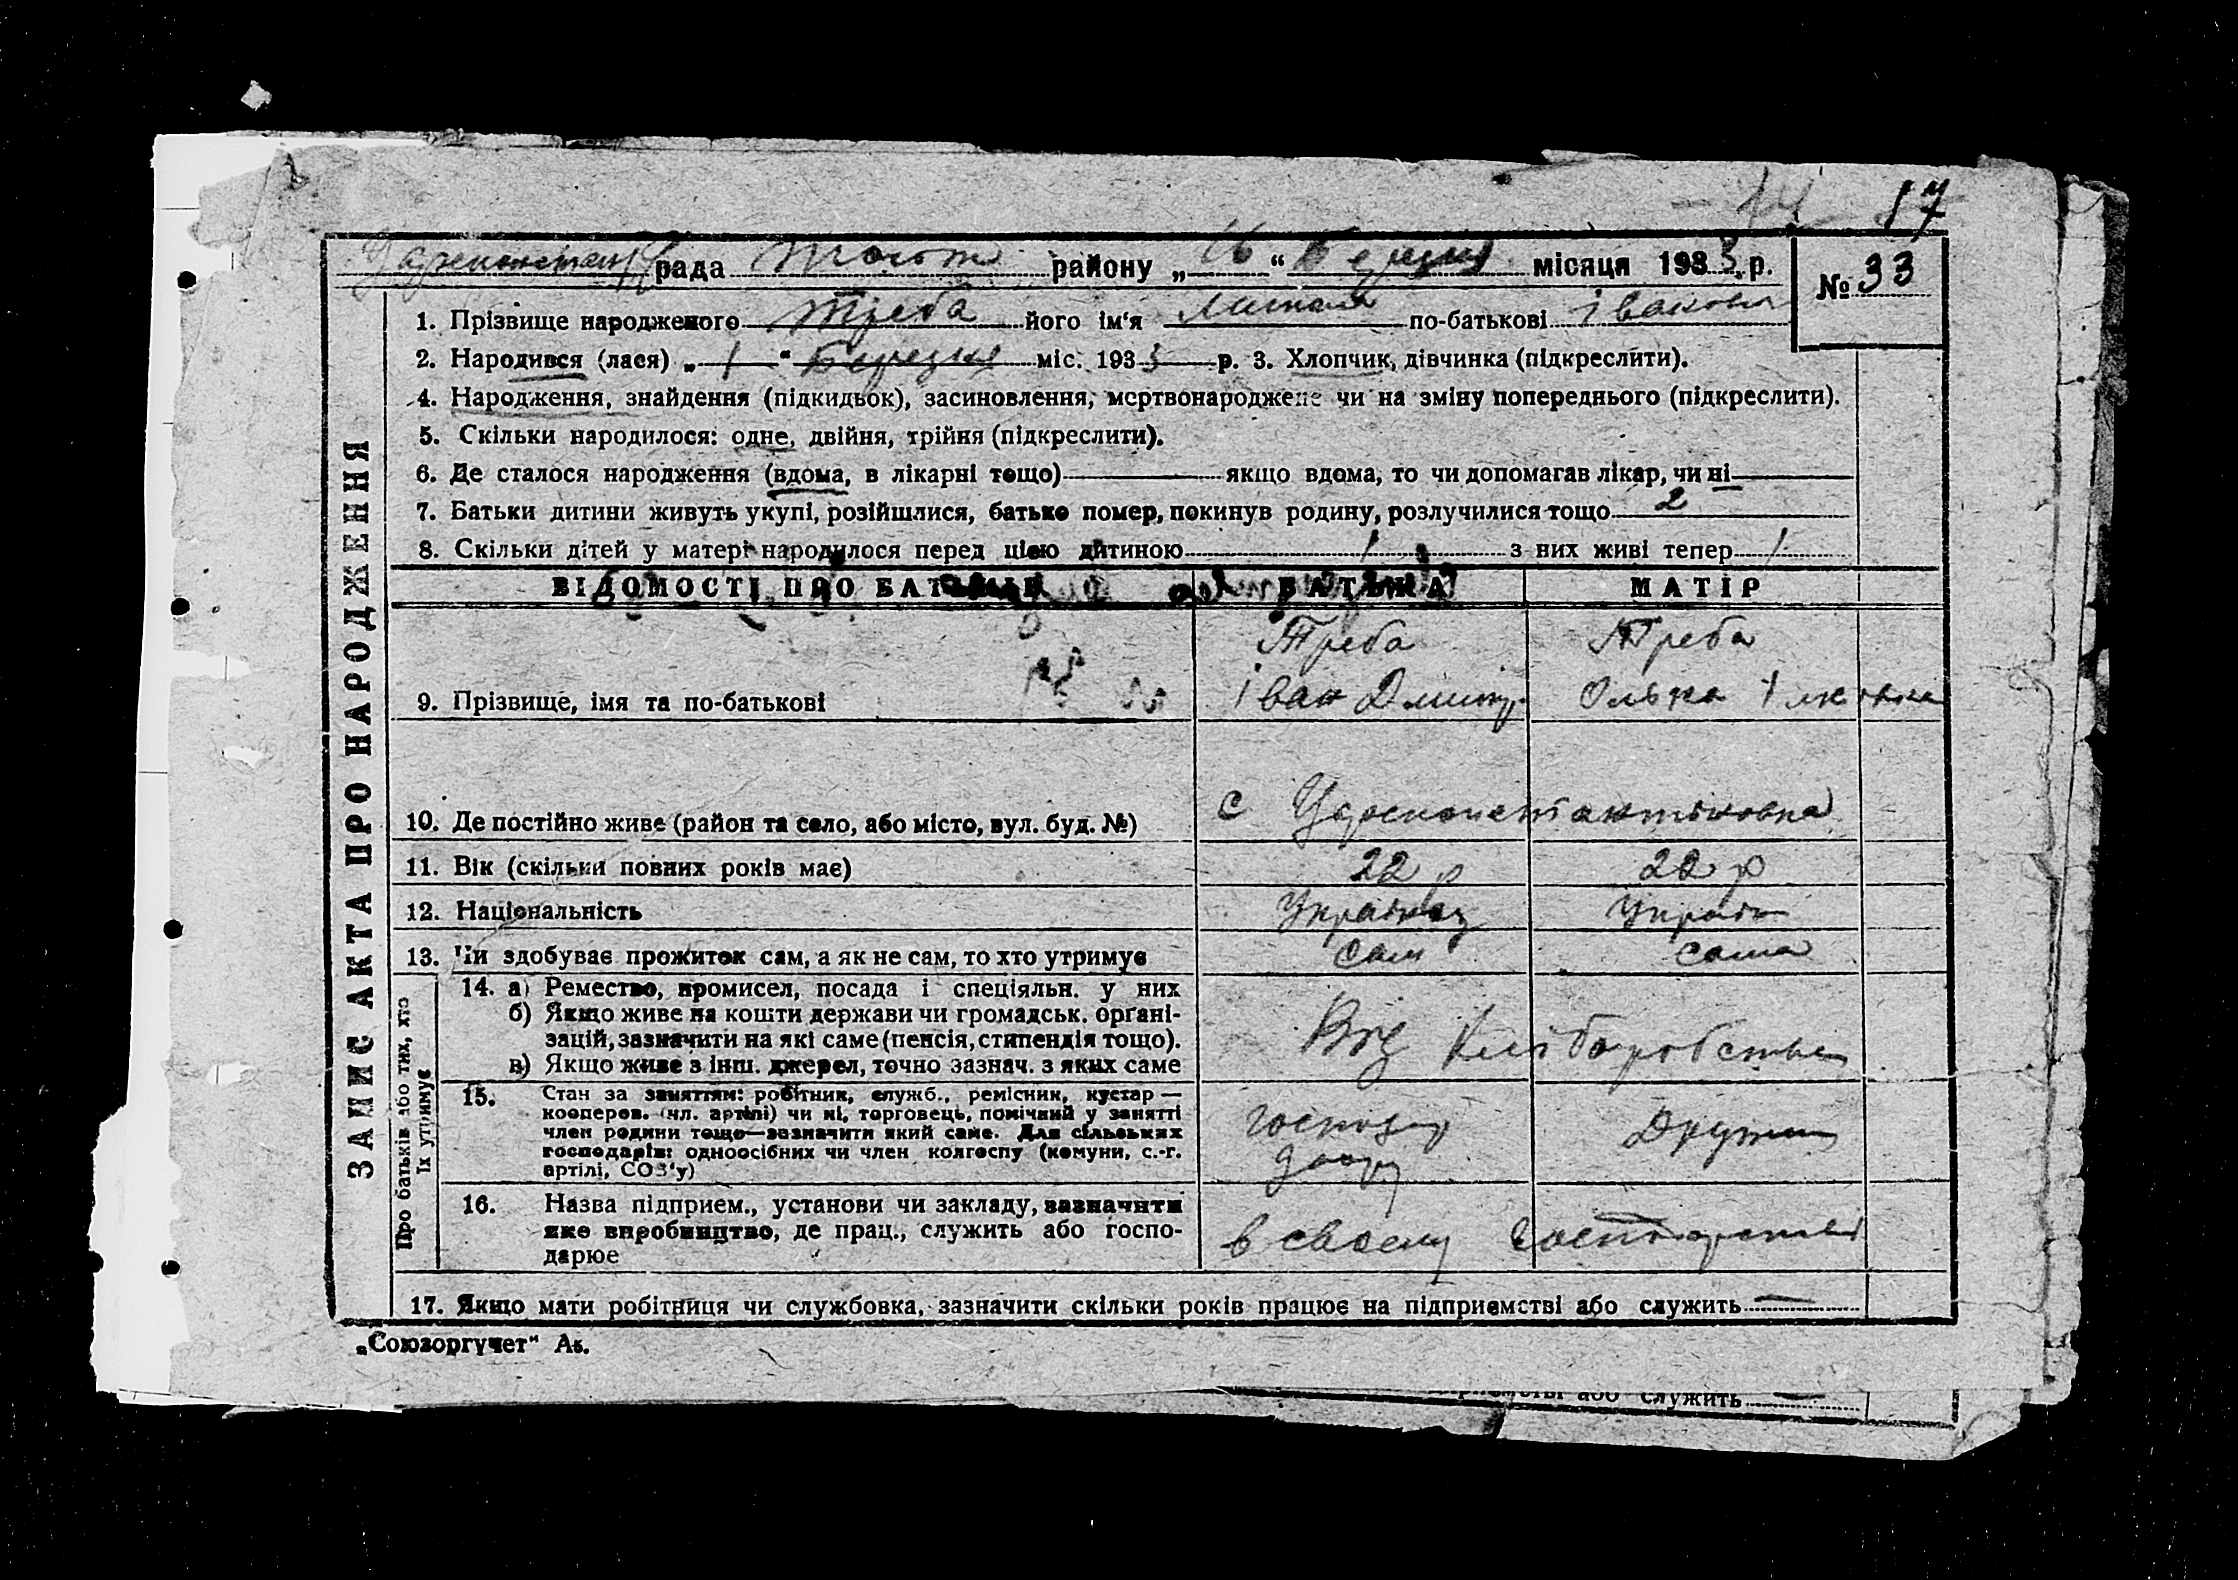 17
рада району „ “ місяця 1933 р. № 33
1. Прізвище народженого Треба його ім‘я по-батькові
2. Народився (лася) „ 1 “ міс. 1933 р. 3. Хлопчик, дівчинка (підкреслити).
4. Народження, знайдення (підкидьок), засиновлення, мертвонароджене чи на зміну попереднього (підкреслити).
5. Скільки народилося: одне, двійня, трійня (підкреслити).
6. Де сталося народження (вдома, в лікарні тощо) якщо вдома, то чи допомагав лікар, чи ні
7. Батьки дитини живуть укупі, розійшлися, батько помер, покинув родину, розлучилися тощо 2
8. Скільки дітей у матері народилося перед цією дитиною 1 з них живі тепер 1
ЗАПИС АКТА ПРО НАРОДЖЕННЯ
ВІДОМОСТІ ПРО БАТЬКІВ БАТЬКА МАТІР
Треба Треба
9. Прізвище, імя та по-батькові Іван
10. Де постійно живе (район та село, або місто, вул. буд. №) с
11. Вік (скільки повних років має) 22 р 22 р
12. Національність Українец Україн
13. Чи здобуває прожиток сам, а як не сам, то хто утримує Сам сама
Про батьків або тих, хто
їх утримує
14. а) Ремество, промисел, посада і спеціяльн. у них
б) Якщо живе на кошти держави чи громадськ. органі-
зацій, зазначити на які саме (пенсія, стипендія тощо).
в) Якщо живе з інш. джерел, точно зазнач. з яких саме
15. Стан за заняттям: робітник, служб., ремісник, кустар —
кооперов. (чл. артілі) чи ні, торговець, помічний у занятті
член родини тощо—зазначити який саме. Для сільських
господарів: одноосібних чи член колгоспу (комуни, с.-г.
артілі, СОЗ‘у)
16. Назва підприєм., установи чи закладу, зазначити
яке виробництво, де прац., служить або госпо-
дарює в своему
17. Якщо мати робітниця чи службовка, зазначити скільки років працює на підприємстві або служить —
„Союзоргучет“
або служить